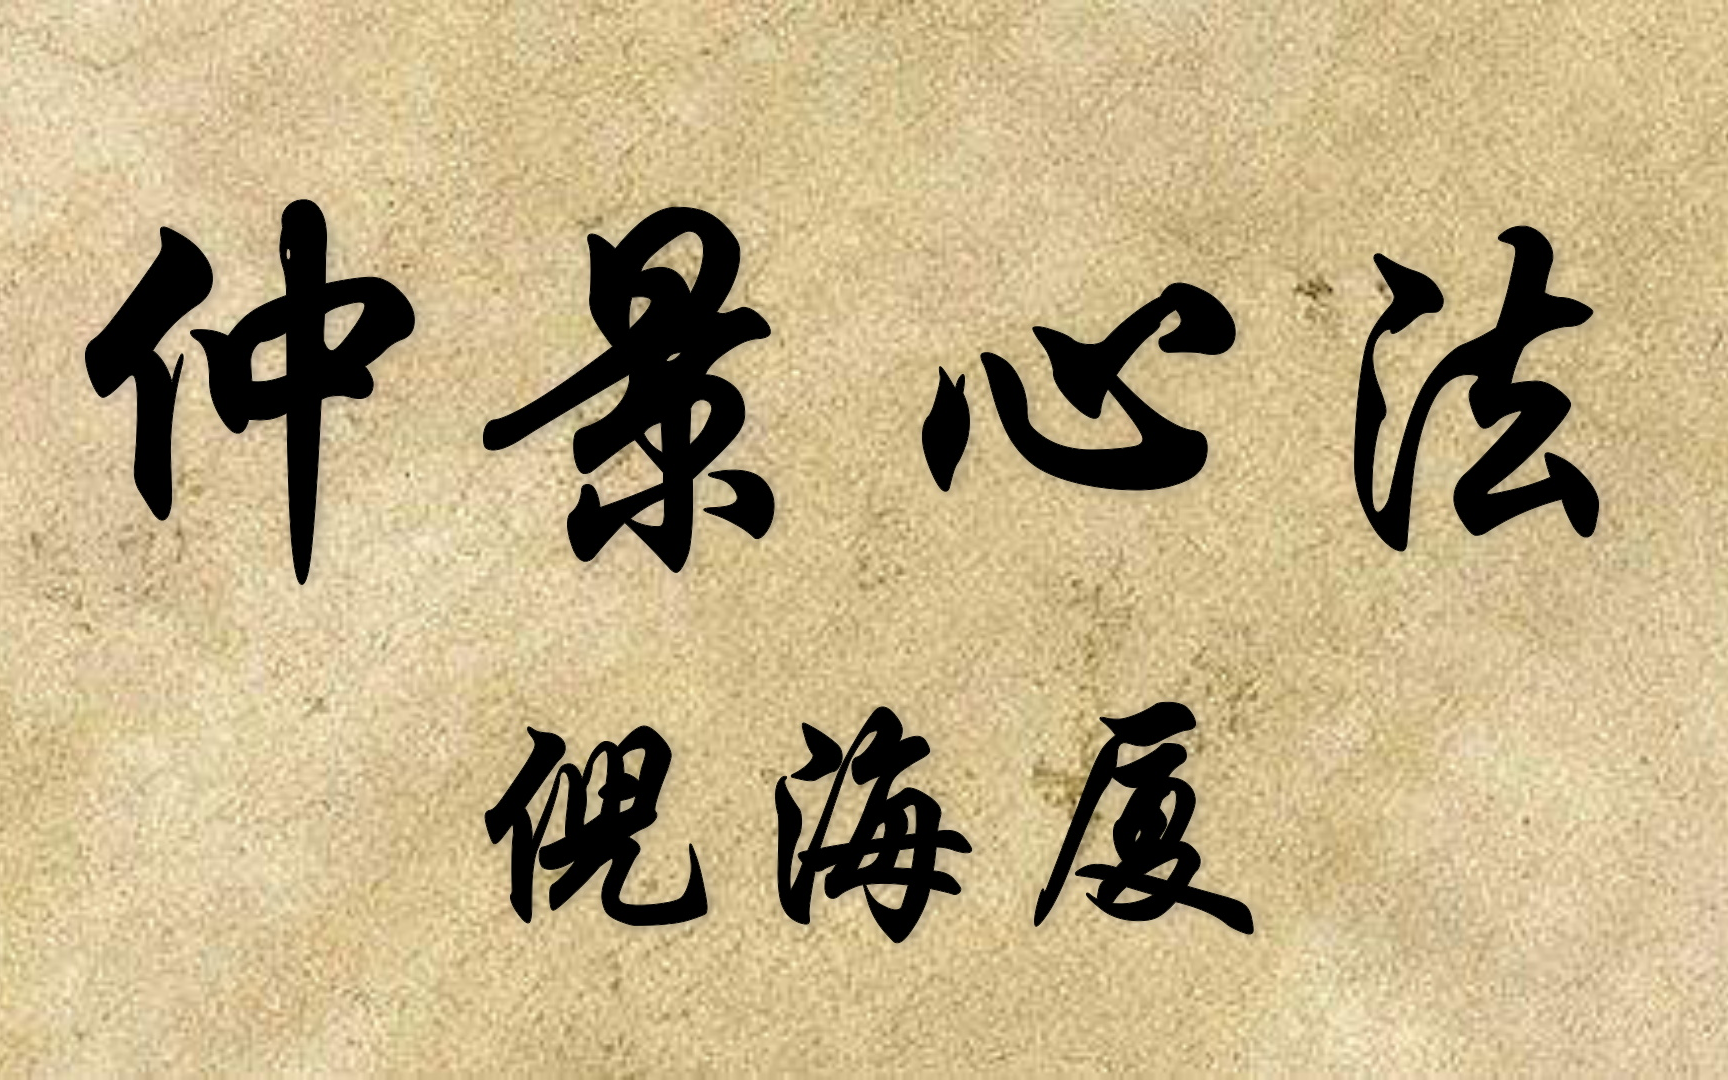 仲景心法
倪海厦